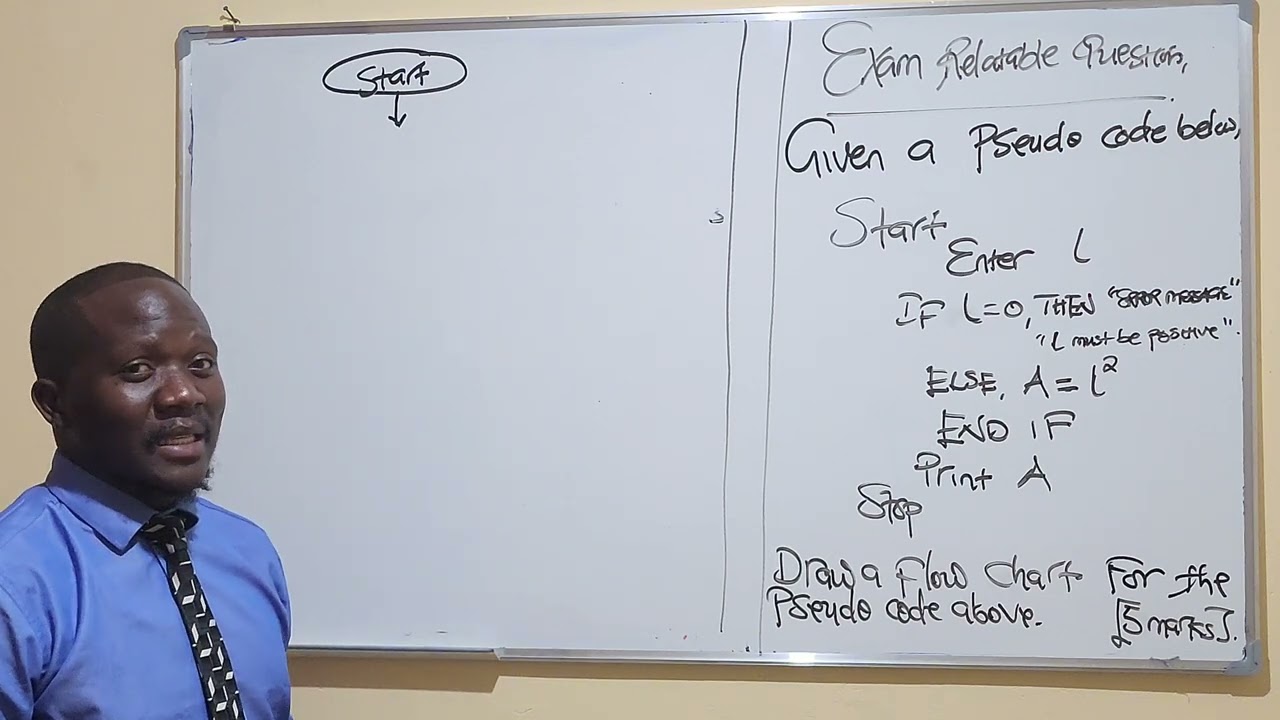 Start
Exam Relatable Questions,
Given a Pseudo code below,
Start
Enter l
IF l=0, THEN "ERROR MESSAGE"
"l must be positive".
ELSE, A = l²
END IF
Print A
Stop
Draw a Flow Chart For the
Pseudo code above. [5 marks].